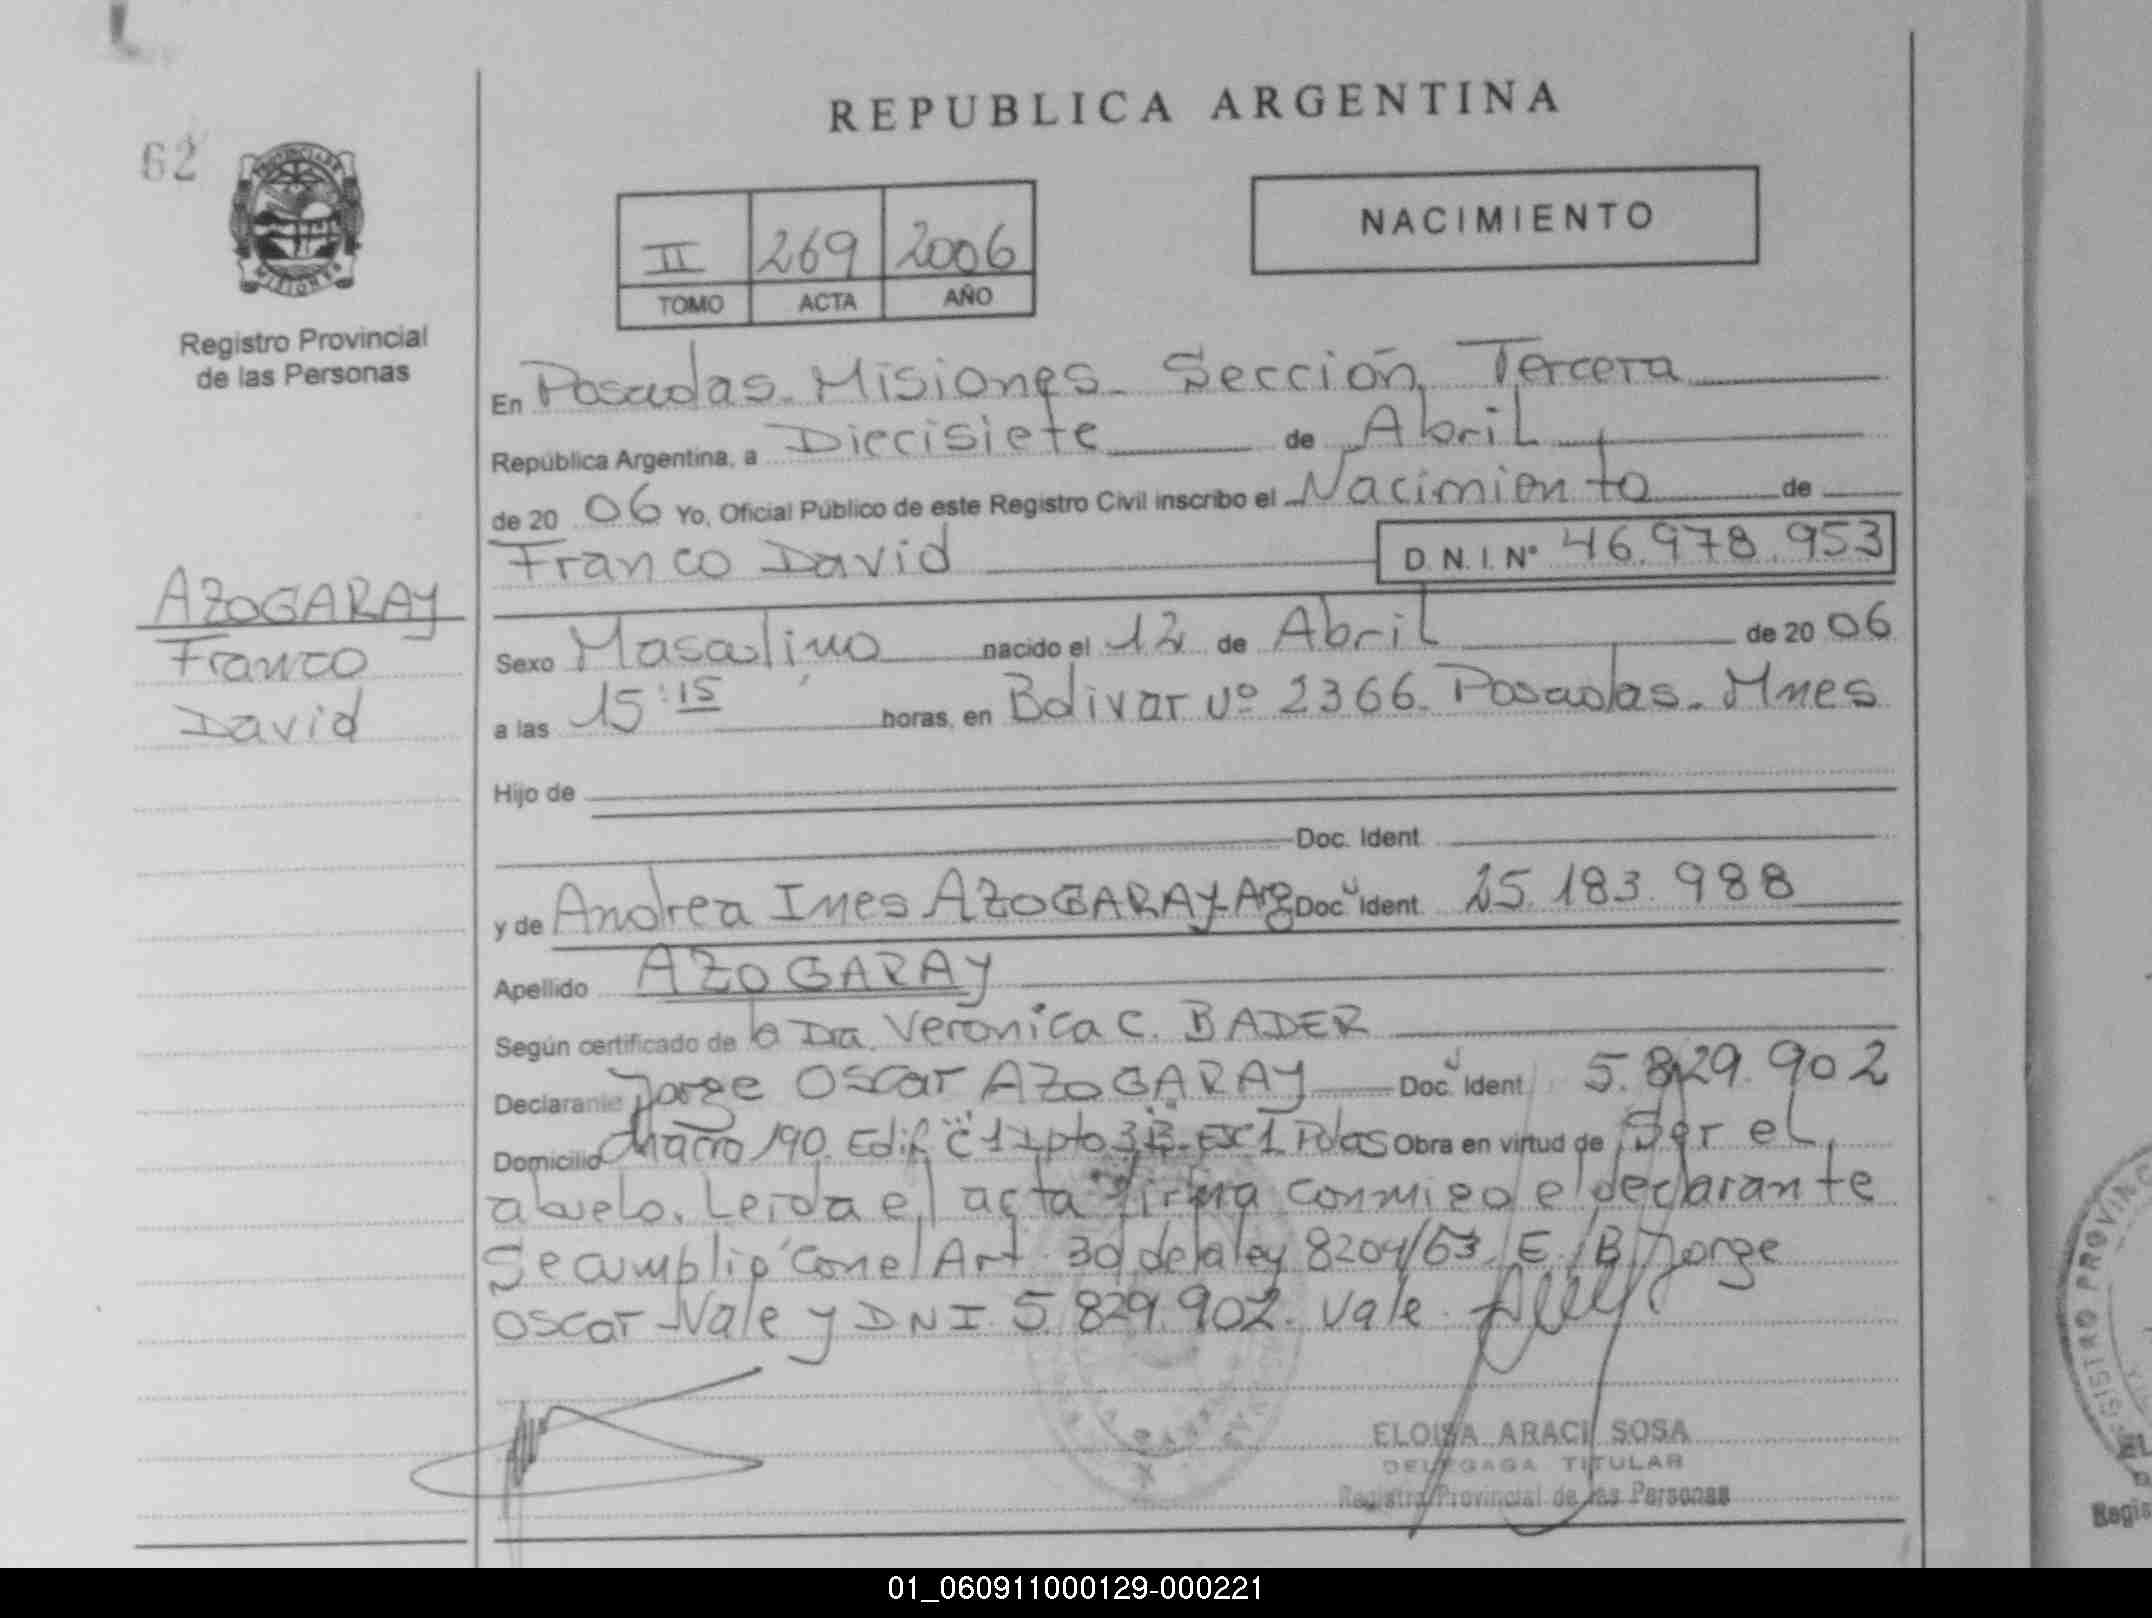 REPUBLICA ARGENTINA
62
NACIMIENTO
II 269 2006
TOMO ACTA AÑO
Registro Provincial
de las Personas
En Posadas - Misiones - Sección Tercera
República Argentina, a Diecisiete de Abril
de 20 06 Yo, Oficial Público de este Registro Civil inscribo el Nacimiento de
Franco David D.N.I. Nº 46.978.953
AZOGARAY
Franco
David
Sexo Masculino nacido el 12 de Abril de 20 06
a las 15:15 horas, en Bolivar Nº 2366. Posadas - Mnes
Hijo de
Doc. Ident.
y de Andrea Ines AZOGARAY - Arg Doc. Ident. 25.183.988
Apellido AZOGARAY
Según certificado de la Dra. Veronica C. BADER
Declarante Jorge Oscar AZOGARAY Doc. Ident. 5.829.902
Domicilio Chacra 190. Edif "C" 1 Dpto 3 Esc 1 Pdas Obra en virtud de Ser el
abuelo. Leida el acta firma conmigo el declarante
Se cumplio con el Art. 30 de la ley 8204/63. E/B Jorge
Oscar - Vale y DNI 5.829.902. Vale.
ELOISA ARACI SOSA
DELEGADA TITULAR
Registro Provincial de las Personas
REGISTRO PROVINC
Regis
01_060911000129-000221